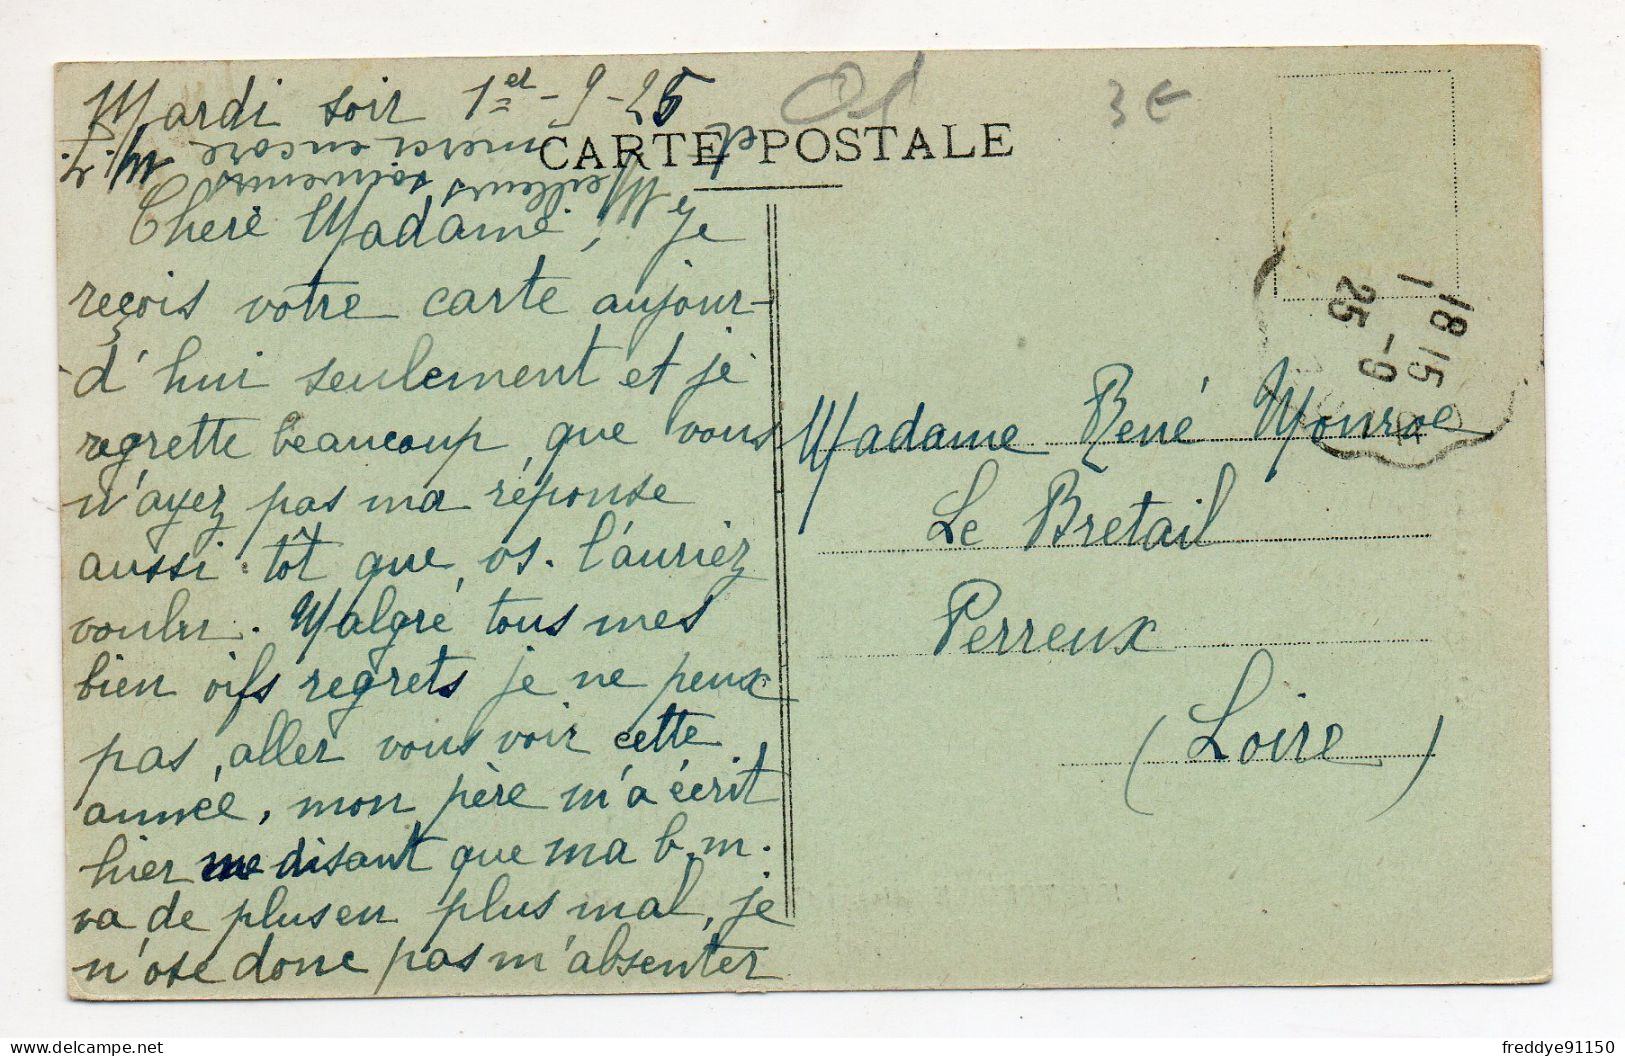 Mardi soir 1er-9-25
Chère Madame, Je
reçois votre carte aujour-
d'hui seulement et je
regrette beaucoup, que vous
n'ayez pas ma réponse
aussi tôt que vs. l'auriez
voulu. Malgré tous mes
bien vifs regrets je ne peux
pas, aller vous voir cette
année, mon père m'a écrit
hier me disant que ma b.m.
va de plus en plus mal, je
n'ose donc pas m'absenter
Meilleurs souvenirs
et merci encore
CARTE POSTALE
3€
18 15
1 -9
25
Madame René Monroe
Le Bretail
Perreux
(Loire)
freddye91150